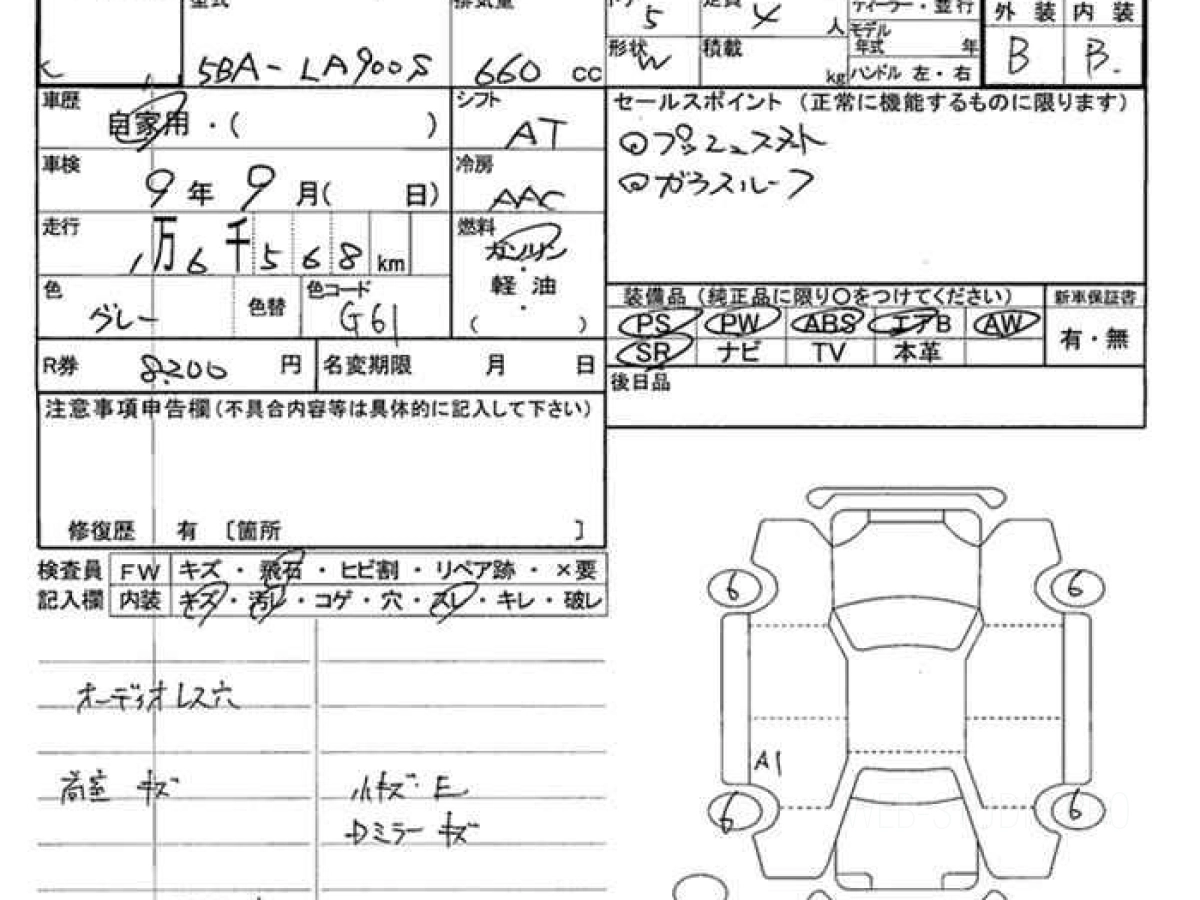 型式 排気量 ドア 定員 ディーラー・並行 外装 内装
5BA-LA900S 660 cc 5 4 人 モデル年式 年 B B.
形状 W 積載 kg ハンドル 左・右
車歴 自家用・( ) シフト AT
セールスポイント(正常に機能するものに限ります)
◎プッシュスタート
◎ガラスルーフ
車検 9年 9月( 日) 冷房 AAC
走行 1万6千568km 燃料 ガソリン
軽油
( )
色 グレー 色替 色コード G61
装備品(純正品に限り○をつけてください) 新車保証書
PS PW ABS エアB AW 有・無
SR ナビ TV 本革
R券 8,200 円 名変期限 月 日
後日品
注意事項申告欄(不具合内容等は具体的に記入して下さい)
修復歴 有 〔箇所 〕
検査員 FW キズ・飛石・ヒビ割・リペア跡・×要
記入欄 内装 キズ・汚レ・コゲ・穴・スレ・キレ・破レ
オーディオレス穴
荷室 キズ
小キズ・E
Dミラー キズ
6 6
A1
6 6